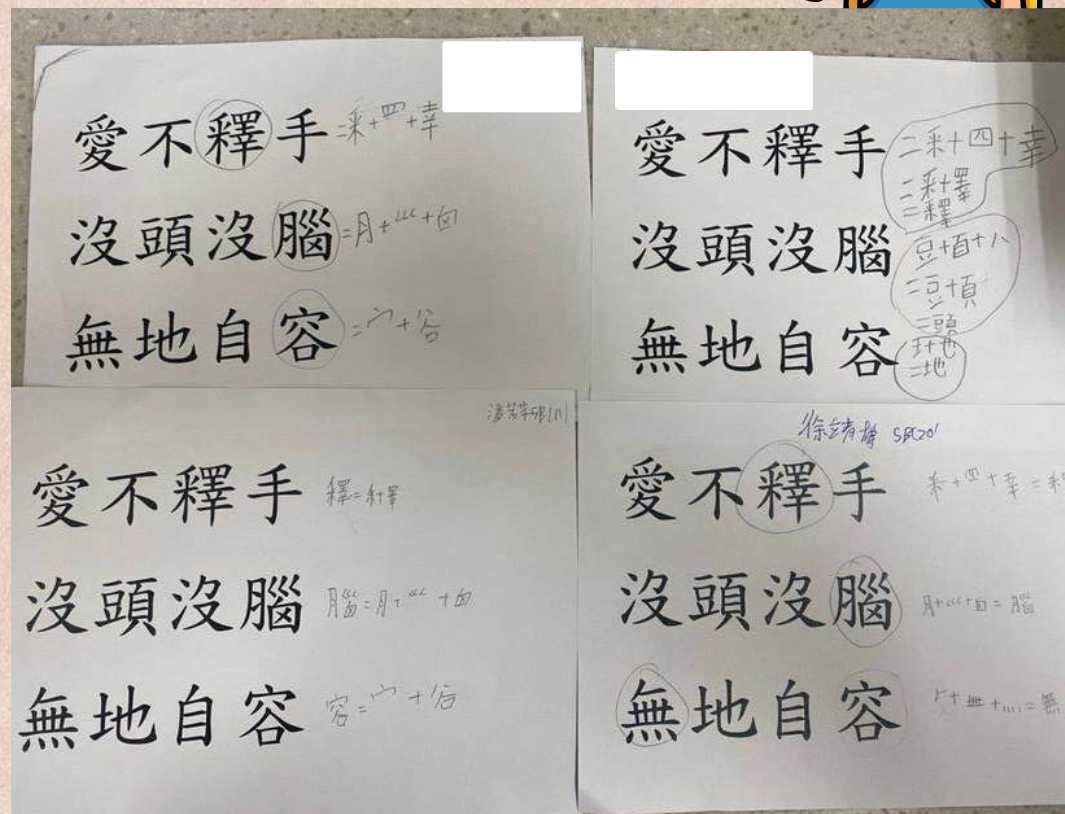 愛不釋手=釆+罒+幸
沒頭沒腦=月+巛+囟
無地自容=宀+谷
愛不釋手=釆+四+幸
=釆+睪
=釋
沒頭沒腦
豆+百+八
=豆+頁
=頭
無地自容
土+也
=地
5B(11)
愛不釋手 釋=釆+睪
沒頭沒腦 腦=月+巛+囟
無地自容 容=宀+谷
愛不釋手 釆+四+幸=
沒頭沒腦 月+巛+囟=腦
無地自容